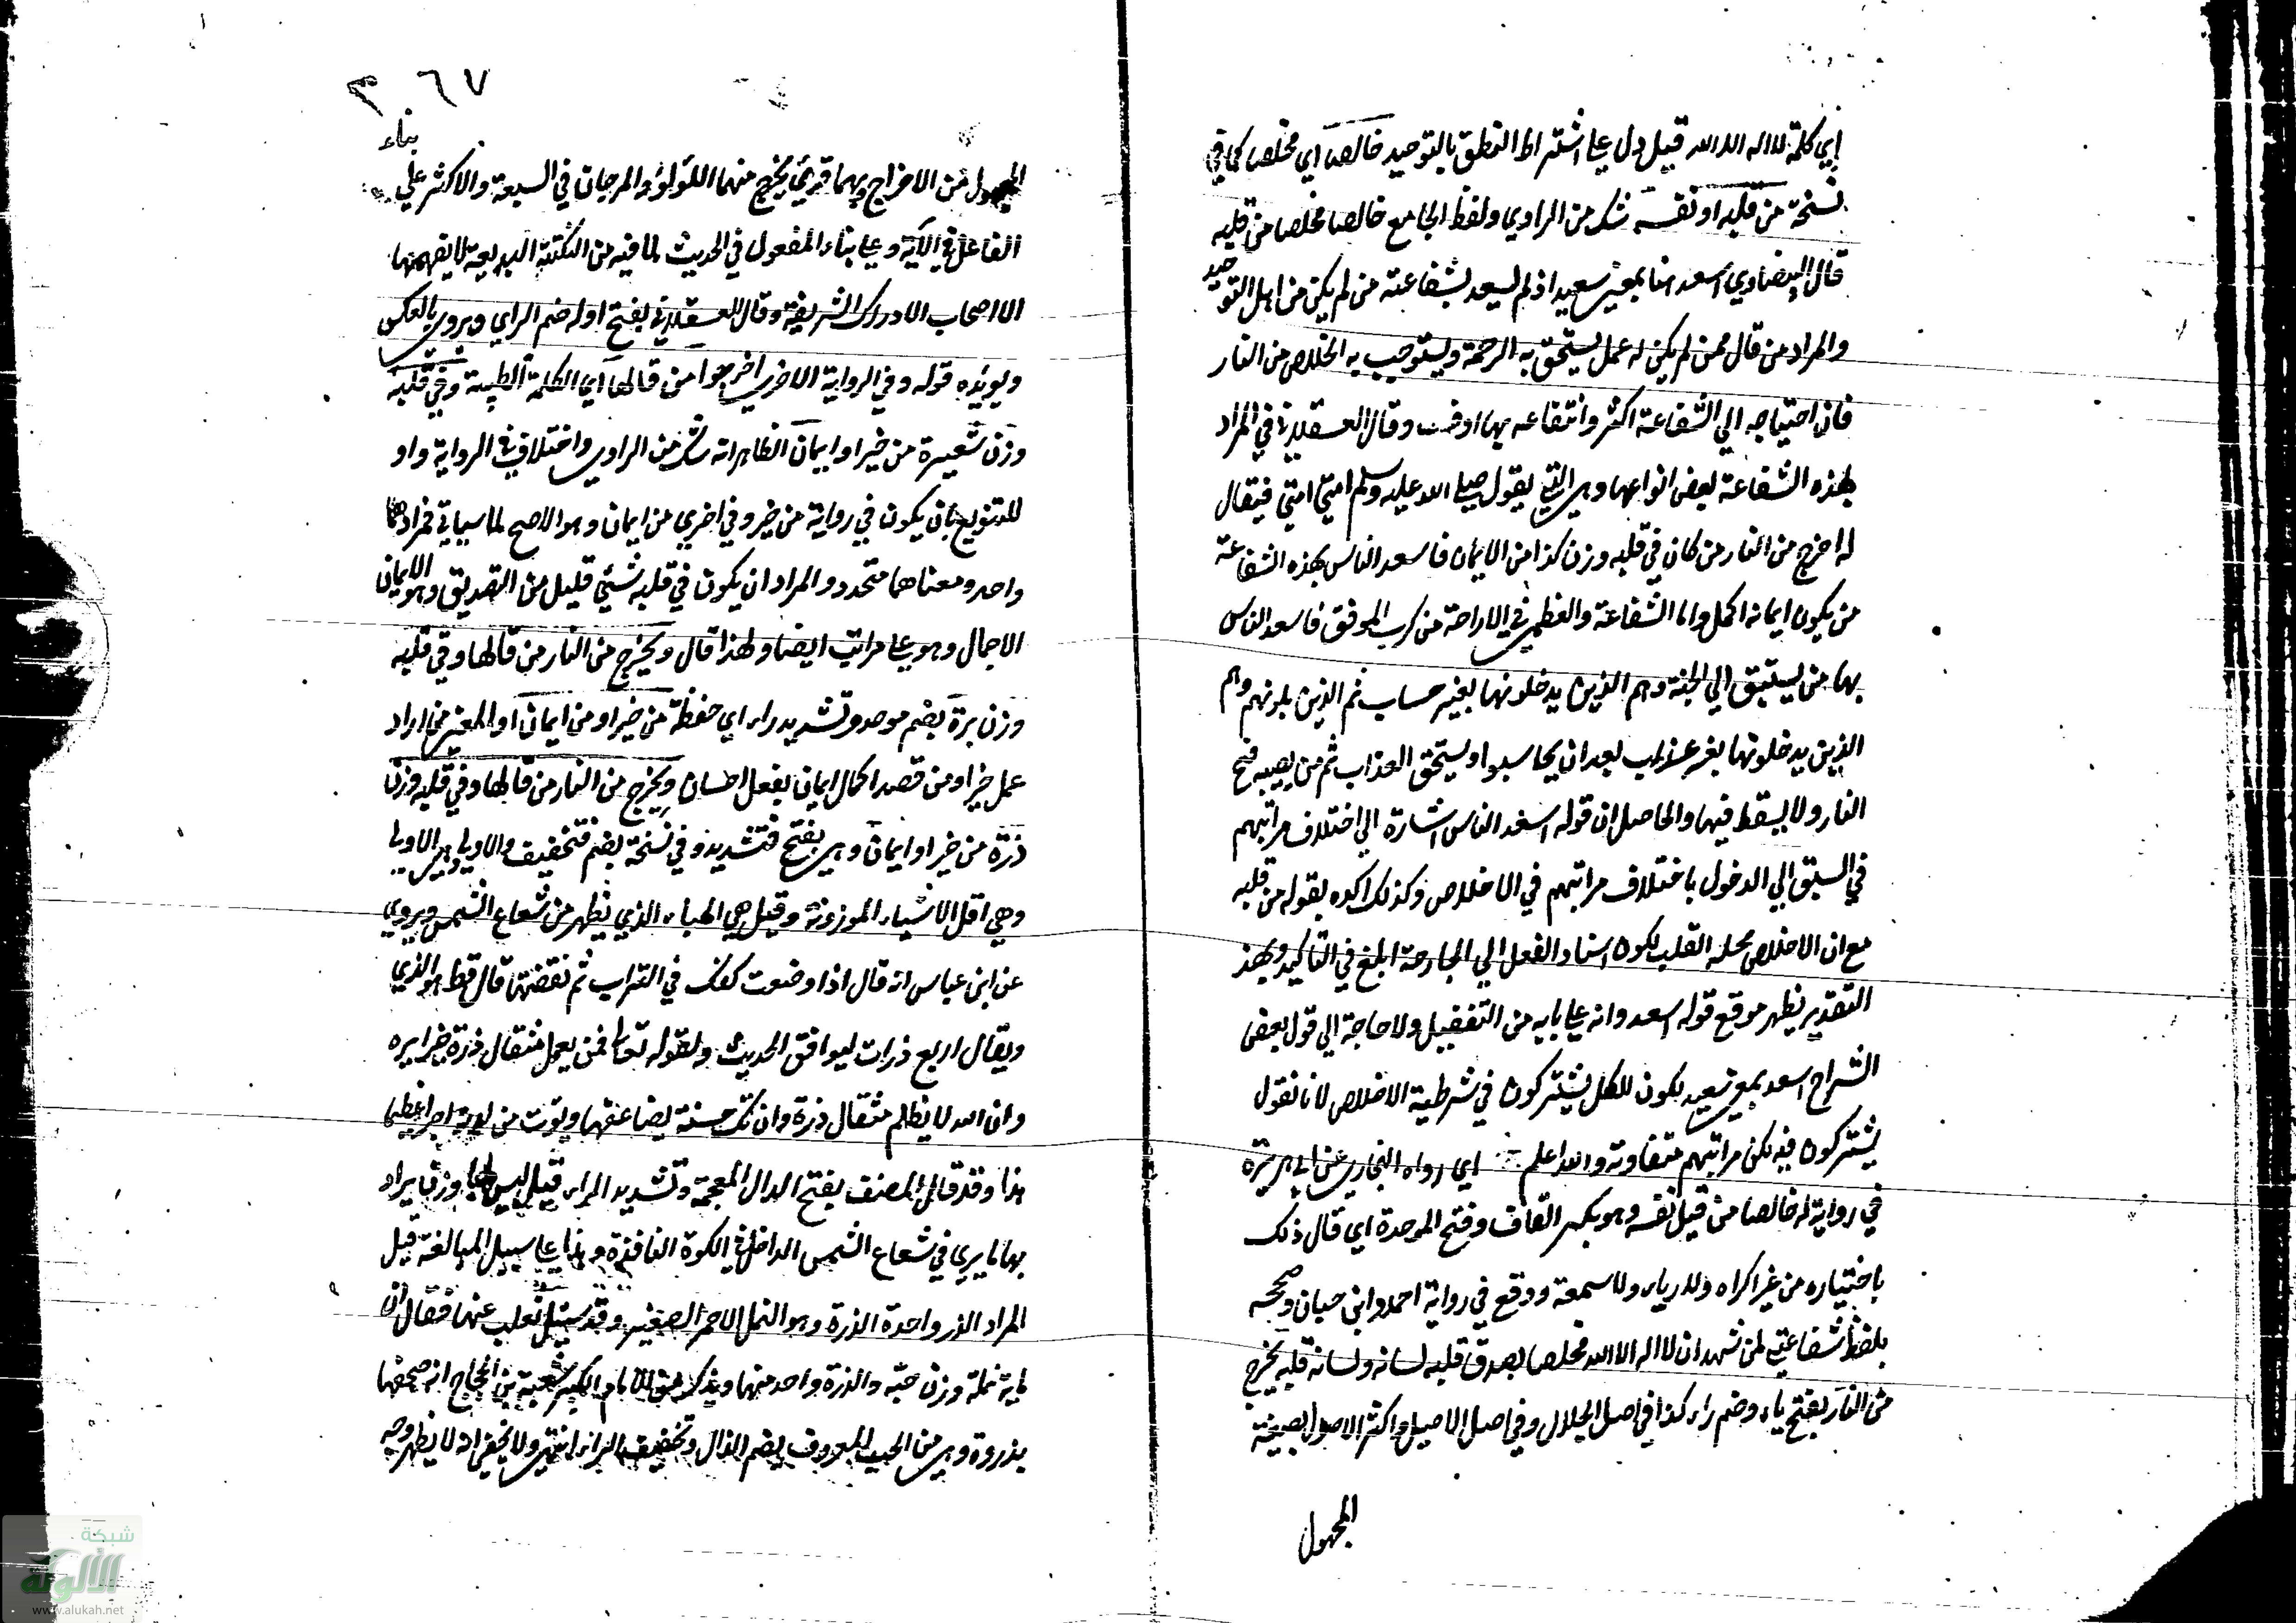 اي كلمة لا اله الا الله قيل دل على اشتراط النطق بالتوحيد خالصا اي مخلصا كما في
نسخة من قلبه او نفسه شك من الراوي ولفظ الجامع خالصا مخلصا من قلبه
قال البيضاوي اسعد هنا بمعنى سعيد اذ لم يسعد بشفاعته من لم يكن من اهل التوحيد
والمراد من قال ممن لم يكن له عمل يستحق به الرحمة ويستوجب به الخلاص من النار
فان احتياجه الي الشفاعة اكثر وانتفاعه بها اوفر وقال العسقلاني في المراد
بهذه الشفاعة بعض انواعها وهي التي يقول صلى الله عليه وسلم امتي امتي فيقال
له اخرج من النار من كان في قلبه وزن كذا من الايمان فاسعد الناس بهذه الشفاعة
من يكون ايمانه اكمل واما الشفاعة والعظمى في الاراحة من كرب الموقف فاسعد الناس
بها من يستبق الي الجنة وهم الذين يدخلونها بغير حساب ثم الذين يلونهم وهم
الذين يدخلونها بغير عذاب بعد ان يحاسبوا ويستحق العذاب ثم من يصيبه فتح
النار ولا يسقط فيها والحاصل ان قوله اسعد الناس اشارة الي اختلاف مراتبهم
في السبق الي الدخول باختلاف مراتبهم في الاخلاص وكذلك اكده بقوله من قلبه
مع ان الاخلاص محله القلب لكون اسناد الفعل الي الجارحة ابلغ في التاكيد وبهذ
التقدير يظهر موقع قوله اسعد وانه على بابه من التفضيل ولا حاجة الي قول بعض
الشراح اسعد بمعنى سعيد لكون الكل يشتركون في شرطية الاخلاص لانا نقول
يشتركون فيه لكن مراتبهم متفاوتة والله اعلم اي رواه البخاري عن ابي هريرة
في رواية له خالصا من قبل نفسه وهو بكسر القاف وفتح الموحدة اي قال ذلك
باختياره من غير اكراه ولا رياء ولا سمعة ووقع في رواية احمد وابن حبان وصححه
بلفظ شفاعتي لمن شهد ان لا اله الا الله مخلصا يصدق قلبه لسانه ولسانه قلبه يخرج
من النار بفتح ياء وضم راء كذا في اصل الجلال وفي اصل الاصيل واكثر الاصول بصيغة
المجهول
٣٠٦٧
بناء
المجهول من الاخراج وبهما قرئ يخرج منهما اللؤلؤ والمرجان في السبعة والاكثر علي
الفاعل في الآية وعلى بناء المفعول في الحديث لما فيه من النكتة البديعة لا يفهمها
الا اصحاب الادراك الشريفة وقال العسقلاني بفتح اوله ضم الراي ويروى بالعكس
ويؤيده قوله وفي الرواية الاخرى اخرجوا من قالها اي الكلمة الطيبة وفي قلبه
وزن شعيرة من خير او ايمان الظاهر انه شك من الراوي واختلاف في الرواية واو
للتنويع بان يكون في رواية من خير وفي اخري من ايمان وهو الاصح لما سياتي فمرادهما
واحد ومعناهما متحد والمراد ان يكون في قلبه شيئ قليل من التصديق وهو الايمان
الاجمال وهو على مراتب ايضا ولهذا قال ويخرج من النار من قالها وفي قلبه
وزن برة بضم موحدة وتشديد راء اي حنطة من خير او من ايمان او المعنى من اراد
عمل خير او من قصد اكمال ايمان بفعل احسان ويخرج من النار من قالها وفي قلبه وزن
ذرة من خير او ايمان وهي بفتح فتشديد وفي نسخة بضم فتخفيف والاولى هي الاولى
وهي اقل الاشياء الموزونة وقيل هي الهباء الذي يظهر من شعاع الشمس ويروي
عن ابن عباس انه قال اذا وضعت كفك في التراب ثم نفضتها قال قط هو الذي
ويقال اربع ذرات ليوافق الحديث ولقوله تعالى فمن يعمل مثقال ذرة خيرا يره
وان الله لا يظلم مثقال ذرة وان تك حسنة يضاعفها ويؤت من لدنه اجرا عظيما
هذا وقد قال المصنف بفتح الدال المعجمة وتشديد الراء قيل ليس لها وزن يراد
بها ما يرى في شعاع الشمس الداخل في الكوة النافذة وهذا على سبيل المبالغة قيل
المراد الذر واحدة الذرة وهو النمل الاحمر الصغير وقد سئل ثعلب عنها فقال ان
ماية نملة وزن حبة والذرة واحد منها ويذكر عن الامام الكبير شعبة بن الحجاج انه صحفها
بذروة وهي من الحب المعروف بضم الذال وتخفيف الراء انتهى ولا يخفى انه لا يظهر وجه
شبكة
الألوكة
www.alukah.net